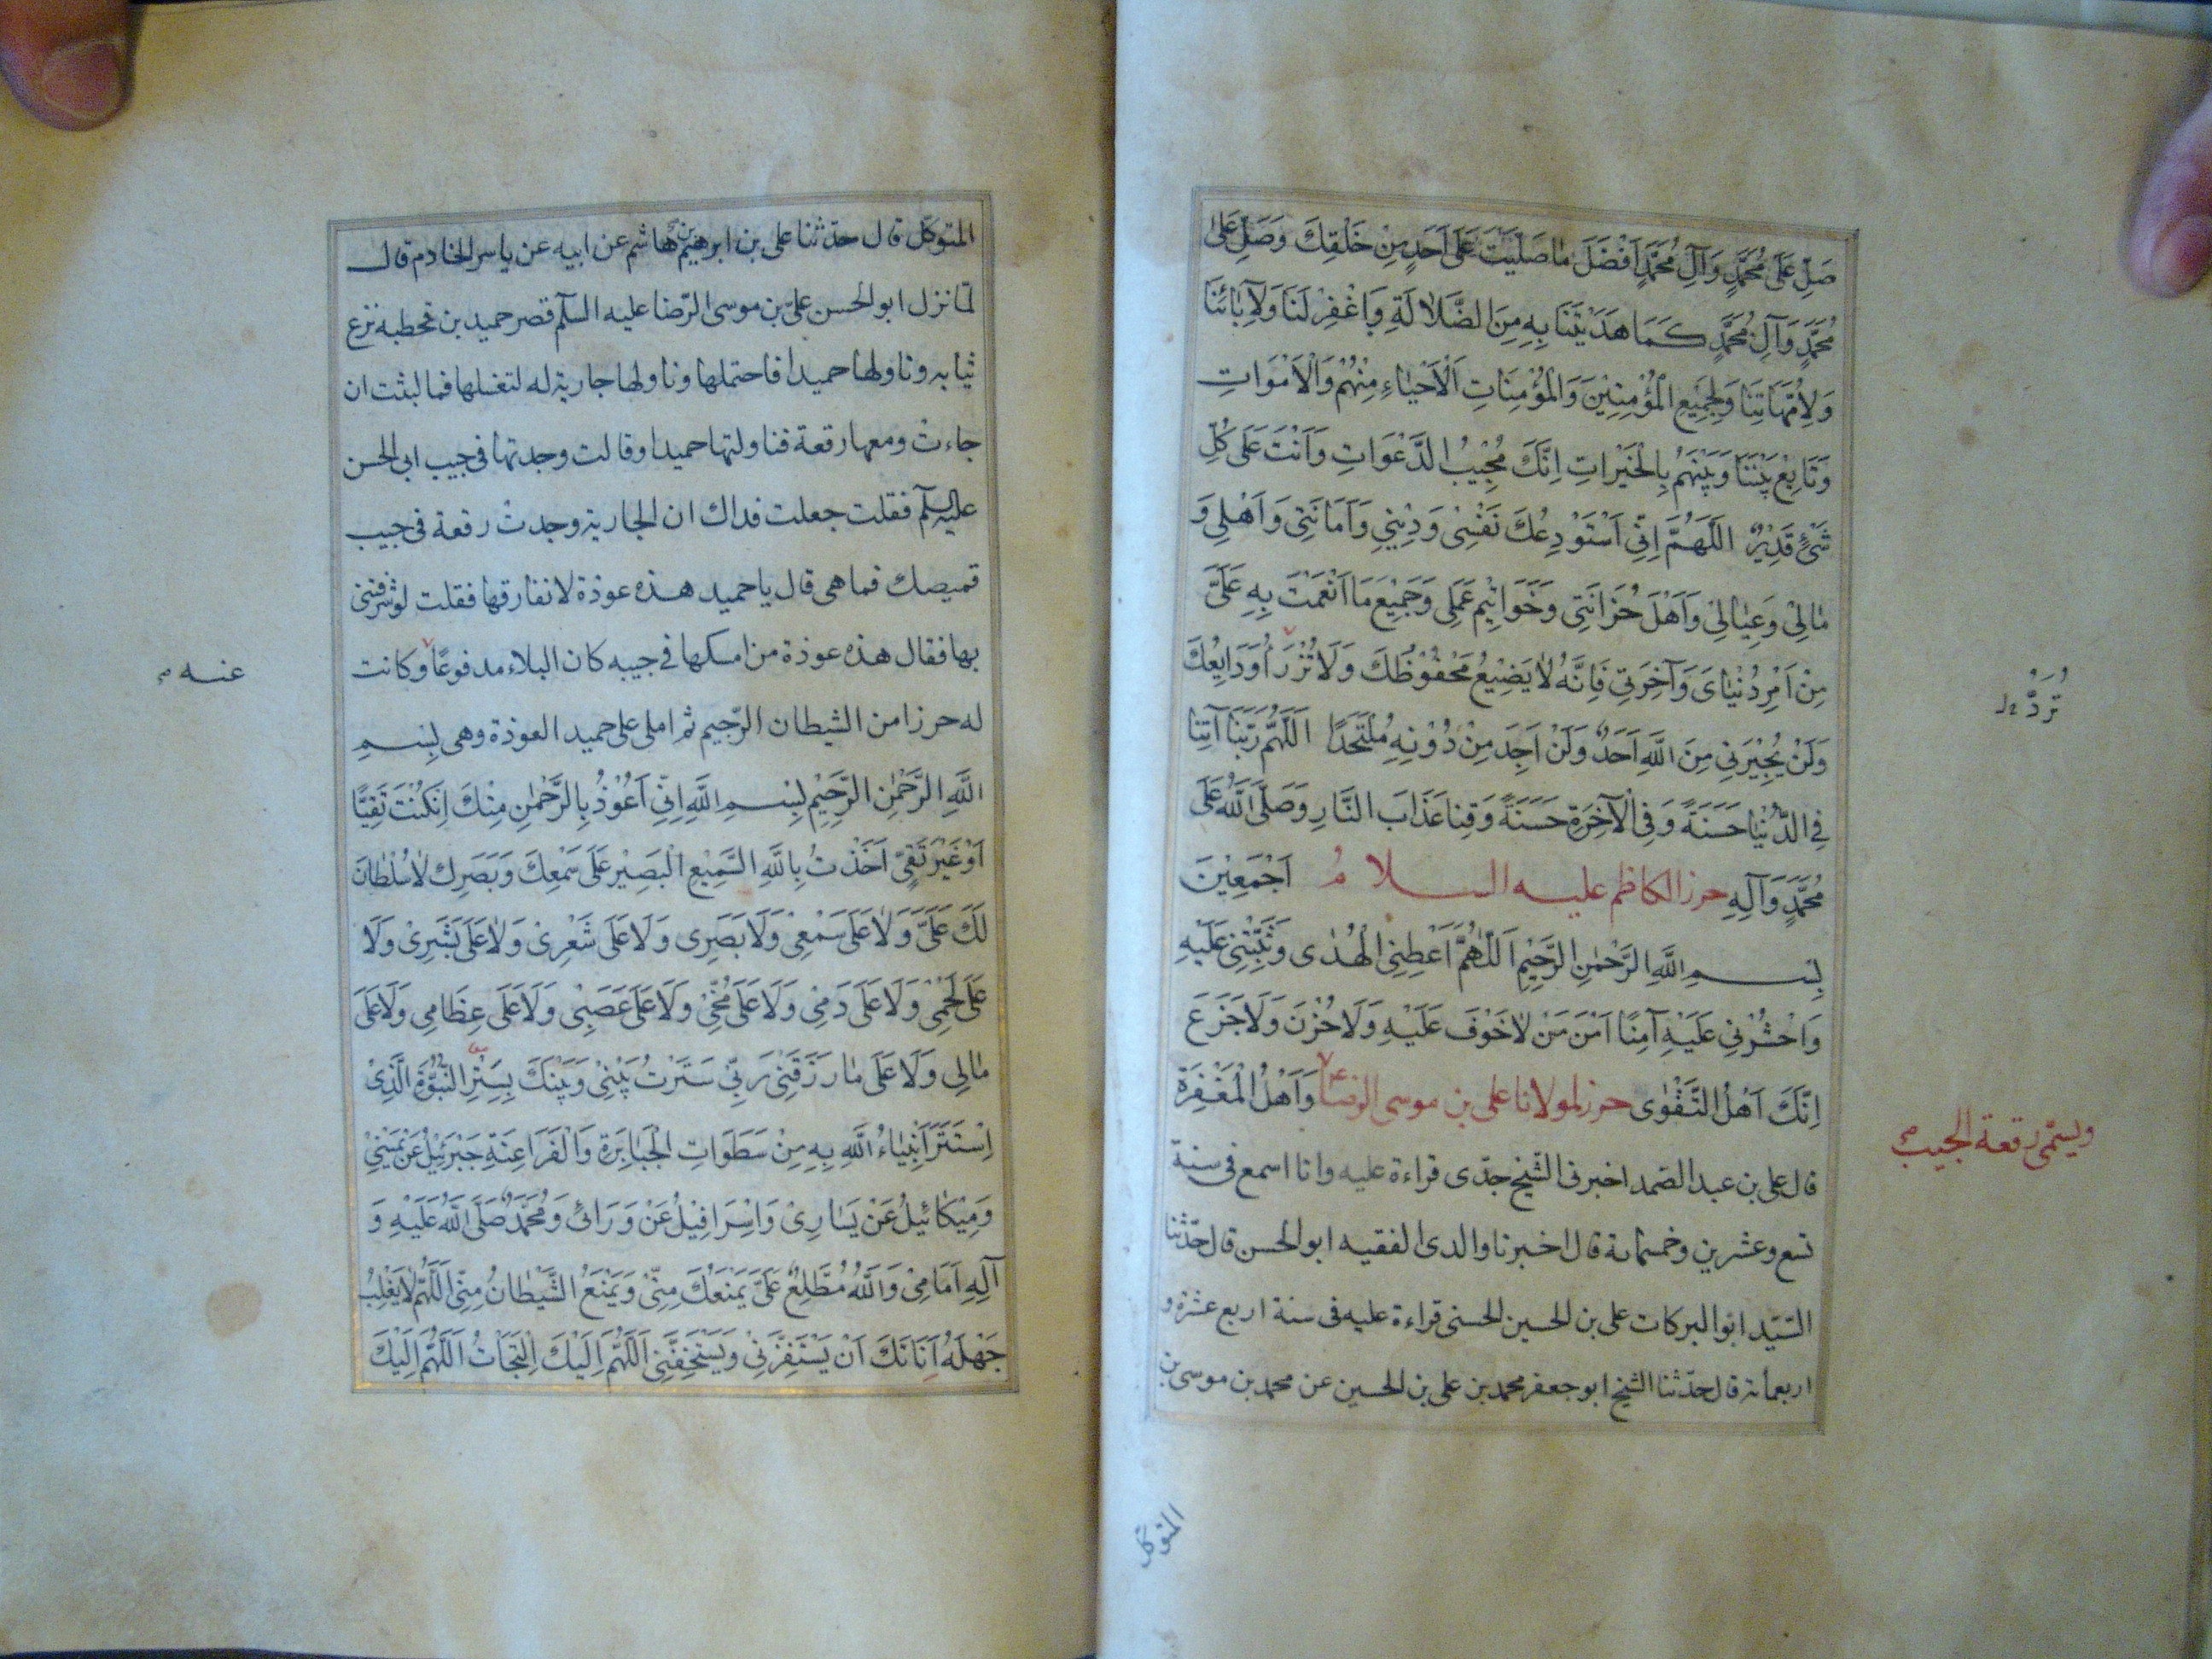 صَلِّ عَلَى مُحَمَّدٍ وَآلِ مُحَمَّدٍ اَفْضَلَ مَا صَلَّيْتَ عَلَى اَحَدٍ مِنْ خَلْقِكَ وَصَلِّ عَلَى
مُحَمَّدٍ وَآلِ مُحَمَّدٍ كَمَا هَدَيْتَنَا بِهِ مِنَ الضَّلَالَةِ وَاغْفِرْ لَنَا وَلِآبَائِنَا
وَلِاُمَّهَاتِنَا وَلِجَمِيعِ الْمُؤْمِنِيْنَ وَالْمُؤْمِنَاتِ اَلْاَحْيَاءِ مِنْهُمْ وَالْاَمْوَاتِ
وَتَابِعْ بَيْنَنَا وَبَيْنَهُمْ بِالْخَيْرَاتِ اِنَّكَ مُجِيْبُ الدَّعَوَاتِ وَاَنْتَ عَلَى كُلِّ
شَيْءٍ قَدِيْرٌ اَللّٰهُمَّ اِنِّي اَسْتَوْدِعُكَ نَفْسِىْ وَدِيْنِي وَاَمَانَتِىْ وَاَهْلِي وَ
مَالِىْ وَعِيَالِىْ وَاَهْلَ حُزَانَتِى وَخَوَاتِيْمَ عَمَلِى وَجَمِيْعَ مَا اَنْعَمْتَ بِهِ عَلَىَّ
مِنْ اَمْرِ دُنْيَاىَ وَآخِرَتِي فَاِنَّهُ لَا يَضِيْعُ مَحْفُوْظُكَ وَلَا تُرْزَأُ وَدَايِعُكَ
وَلَنْ يُجِيْرَنِي مِنَ اللّٰهِ اَحَدٌ وَلَنْ اَجِدَ مِنْ دُوْنِهِ مُلْتَحَدًا اَللّٰهُمَّ رَبَّنَا آتِنَا
فِي الدُّنْيَا حَسَنَةً وَفِي الْآخِرَةِ حَسَنَةً وَقِنَا عَذَابَ النَّارِ وَصَلَّى اللّٰهُ عَلَى
مُحَمَّدٍ وَآلِهِ حرز الكاظم عليه السلام اَجْمَعِيْنَ
بِسْمِ اللّٰهِ الرَّحْمٰنِ الرَّحِيْمِ اَللّٰهُمَّ اَعْطِنِى الْهُدٰى وَثَبِّتْنِى عَلَيْهِ
وَاحْشُرْنِي عَلَيْهِ آمِنًا اَمْنَ مَنْ لَا خَوْفَ عَلَيْهِ وَلَا حُزْنَ وَلَا جَزَعَ
اِنَّكَ اَهْلُ التَّقْوٰى حرز لمولانا على بن موسى الرضا ع وَاَهْلُ الْمَغْفِرَةِ
قال على بن عبد الصمد اخبرنى الشيخ جدّى قراءة عليه وانا اسمع فى سنة
تسع وعشرين وخمسمائة قال اخبرنا والدى الفقيه ابو الحسن قال حدّثنا
السّيّد ابو البركات على بن الحسين الحسنى قراءة عليه فى سنة اربع عشرة و
اربعمائة قال حدّثنا الشيخ ابو جعفر محمد بن على بن الحسين عن محمد بن موسى بن
المتوكل
ويسمّى رقعة الجيب
المتوكّل قال حدّثنا على بن ابرهيم بن هاشم عن ابيه عن ياسر الخادم قال
لمّا نزل ابو الحسن علىّ بن موسى الرّضا عليه السلم قصر حميد بن قحطبة نزع
ثيابه وناولها حميدا فاحتملها وناولها جارية له لتغسلها فما لبثت ان
جاءت ومعها رقعة فناولتها حميدا وقالت وجدتها فى جيب ابى الحسن
عليه السلم فقلت جعلت فداك ان الجارية وجدت رقعة فى جيب
قميصك فما هى قال يا حميد هذه عوذة لا نفارقها فقلت لو شرفتنى
بها فقال هذه عوذة من امسكها فى جيبه كان البلاء مدفوعًا وكانت
عنه
له حرزا من الشيطان الرّجيم ثم املى على حميد العوذة وهى بِسْمِ
اللّٰهِ الرَّحْمٰنِ الرَّحِيْمِ بِسْمِ اللّٰهِ اِنِّي اَعُوْذُ بِالرَّحْمٰنِ مِنْكَ اِنْ كُنْتَ تَقِيًّا
اَوْ غَيْرَ تَقِىٍّ اَخَذْتُ بِاللّٰهِ السَّمِيْعِ الْبَصِيْرِ عَلَى سَمْعِكَ وَبَصَرِكَ لَا سُلْطَانَ
لَكَ عَلَىَّ وَلَا عَلَى سَمْعِىْ وَلَا بَصَرِى وَلَا عَلَى شَعْرِىْ وَلَا عَلَى بَشَرِىْ وَلَا
عَلَى لَحْمِىْ وَلَا عَلَى دَمِىْ وَلَا عَلَى مُخِّىْ وَلَا عَلَى عَصَبِىْ وَلَا عَلَى عِظَامِى وَلَا عَلَى
مَالِى وَلَا عَلَى مَا رَزَقَنِىْ رَبِّى سَتَرْتُ بَيْنِىْ وَبَيْنَكَ بِسِتْرِ النُّبُوَّةِ الَّذِىْ
اِسْتَتَرَ اَنْبِيَاءُ اللّٰهِ بِهِ مِنْ سَطَوَاتِ الْجَبَابِرَةِ وَالْفَرَاعِنَةِ جَبْرَئِيْلُ عَنْ يَمِيْنِىْ
وَمِيْكَائِيْلُ عَنْ يَسَارِىْ وَاِسْرَافِيْلُ عَنْ وَرَائِىْ وَمُحَمَّدٌ صَلَّى اللّٰهُ عَلَيْهِ وَ
آلِهِ اَمَامِىْ وَاللّٰهُ مُطَّلِعٌ عَلَىَّ يَمْنَعُكَ مِنِّىْ وَيَمْنَعُ الشَّيْطَانَ مِنِّى اَللّٰهُمَّ لَا يَغْلِبُ
جَهْلُهُ اَنَاتَكَ اَنْ يَسْتَفِزَّنِىْ وَيَسْتَخِفَّنِى اَللّٰهُمَّ اِلَيْكَ الْتَجَأْتُ اَللّٰهُمَّ اِلَيْكَ